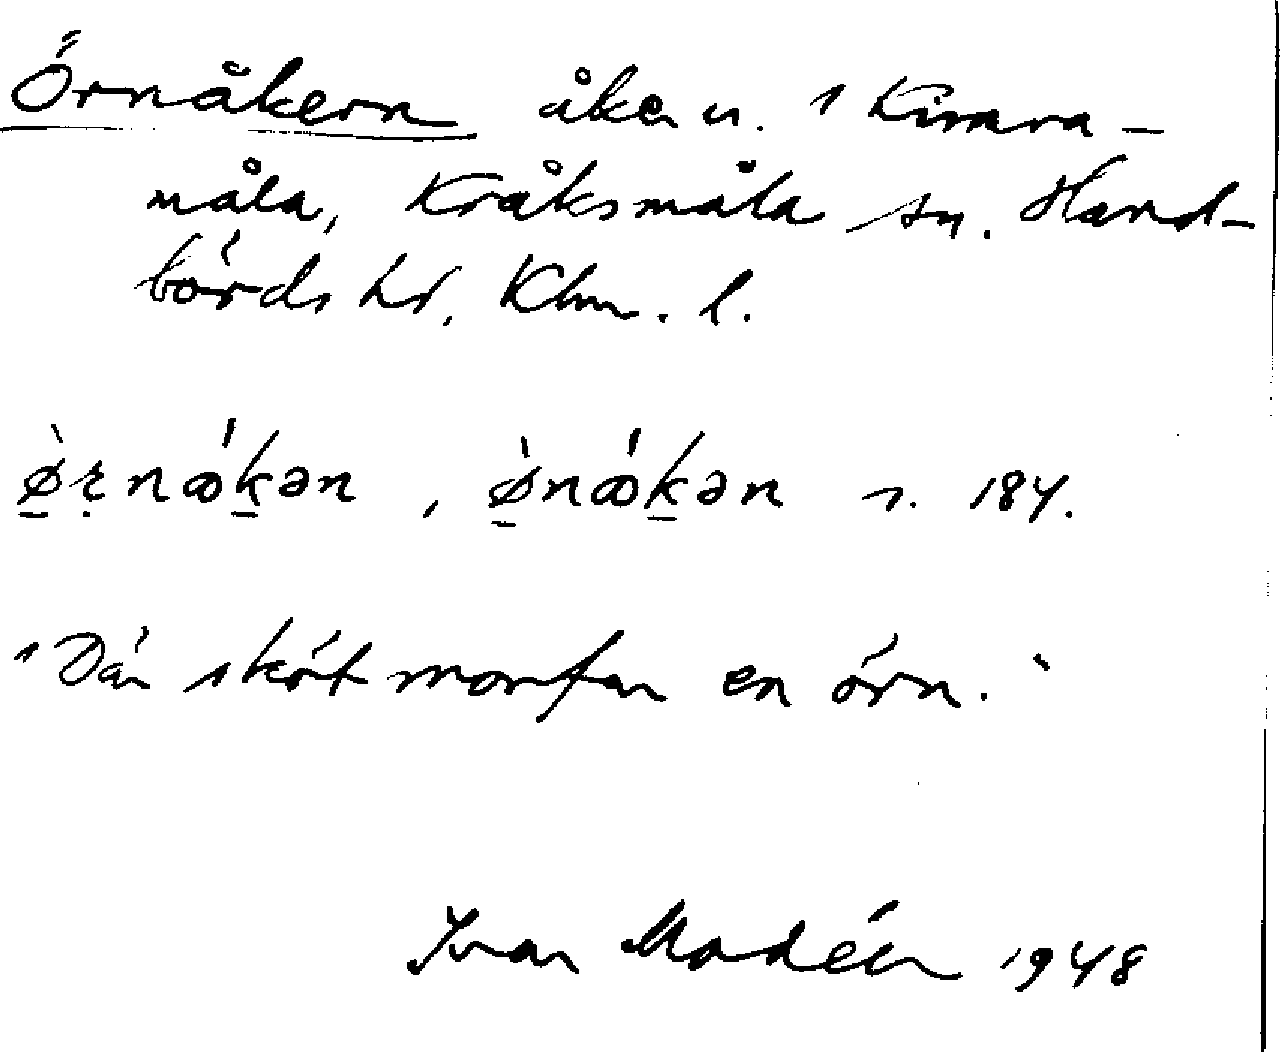 Örnåkern åker u. Kimra-
måla, Kråksmåla sn. Hand-
börds hd, Klm. l.
ø̱̀ṛnꝏ́ḵən , ø̱̀nꝏ́ḵən s. 184.
"Där sköt morfar en örn."
Ivar Modéer 1948